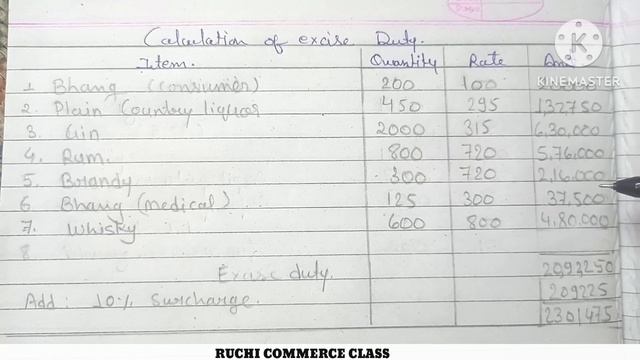 Calculation of excise Duty.
Item. Quantity Rate Am
1 Bhang (consumer) 200 100
2. Plain Country liquor 450 295 1,32750
3. Gin 2000 315 6,30,000
4. Rum. 800 720 5,76,000
5. Brandy 300 720 2,16,000
6 Bhang (medical) 125 300 37,500
7. Whisky 600 800 4,80,000
8
Excise duty. 2092250
Add: 10% Surcharge. 209225
2301475
KINEMASTER
RUCHI COMMERCE CLASS